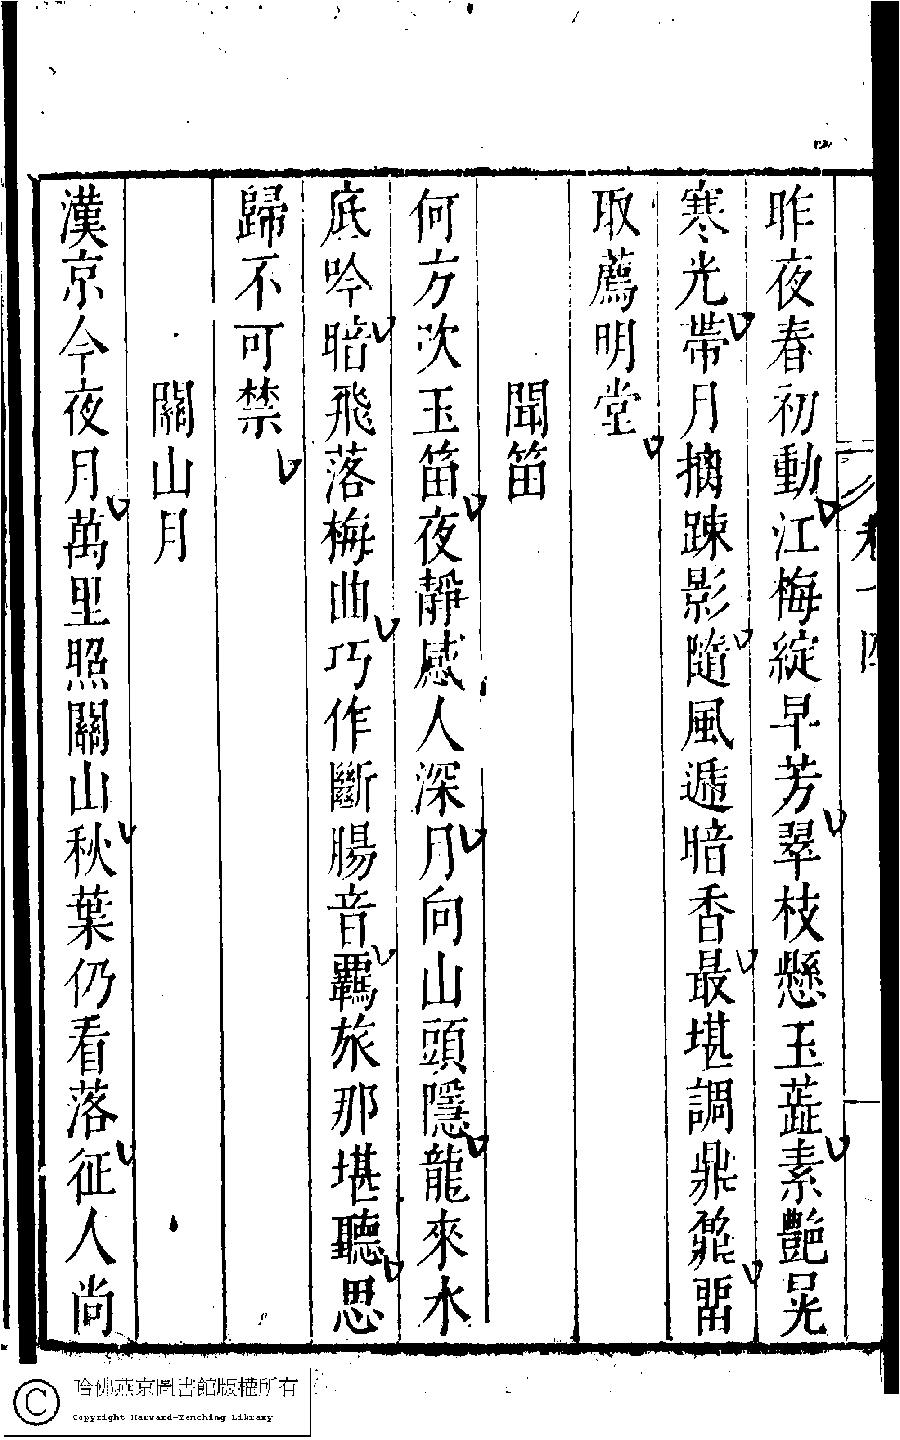 卷十四
昨夜春初動江梅綻早芳翠枝懸玉蕋素艷晃
寒光帶月摘踈影隨風遞暗香最堪調鼎鼐畱
取薦明堂
聞笛
何方吹玉笛夜靜感人深月向山頭隱龍來水
底吟暗飛落梅曲巧作斷腸音覊旅那堪聽思
歸不可禁
關山月
漢京今夜月萬里照關山秋葉仍看落征人尚
C 哈佛燕京圖書館版權所有
Copyright Harvard-Yenching Library